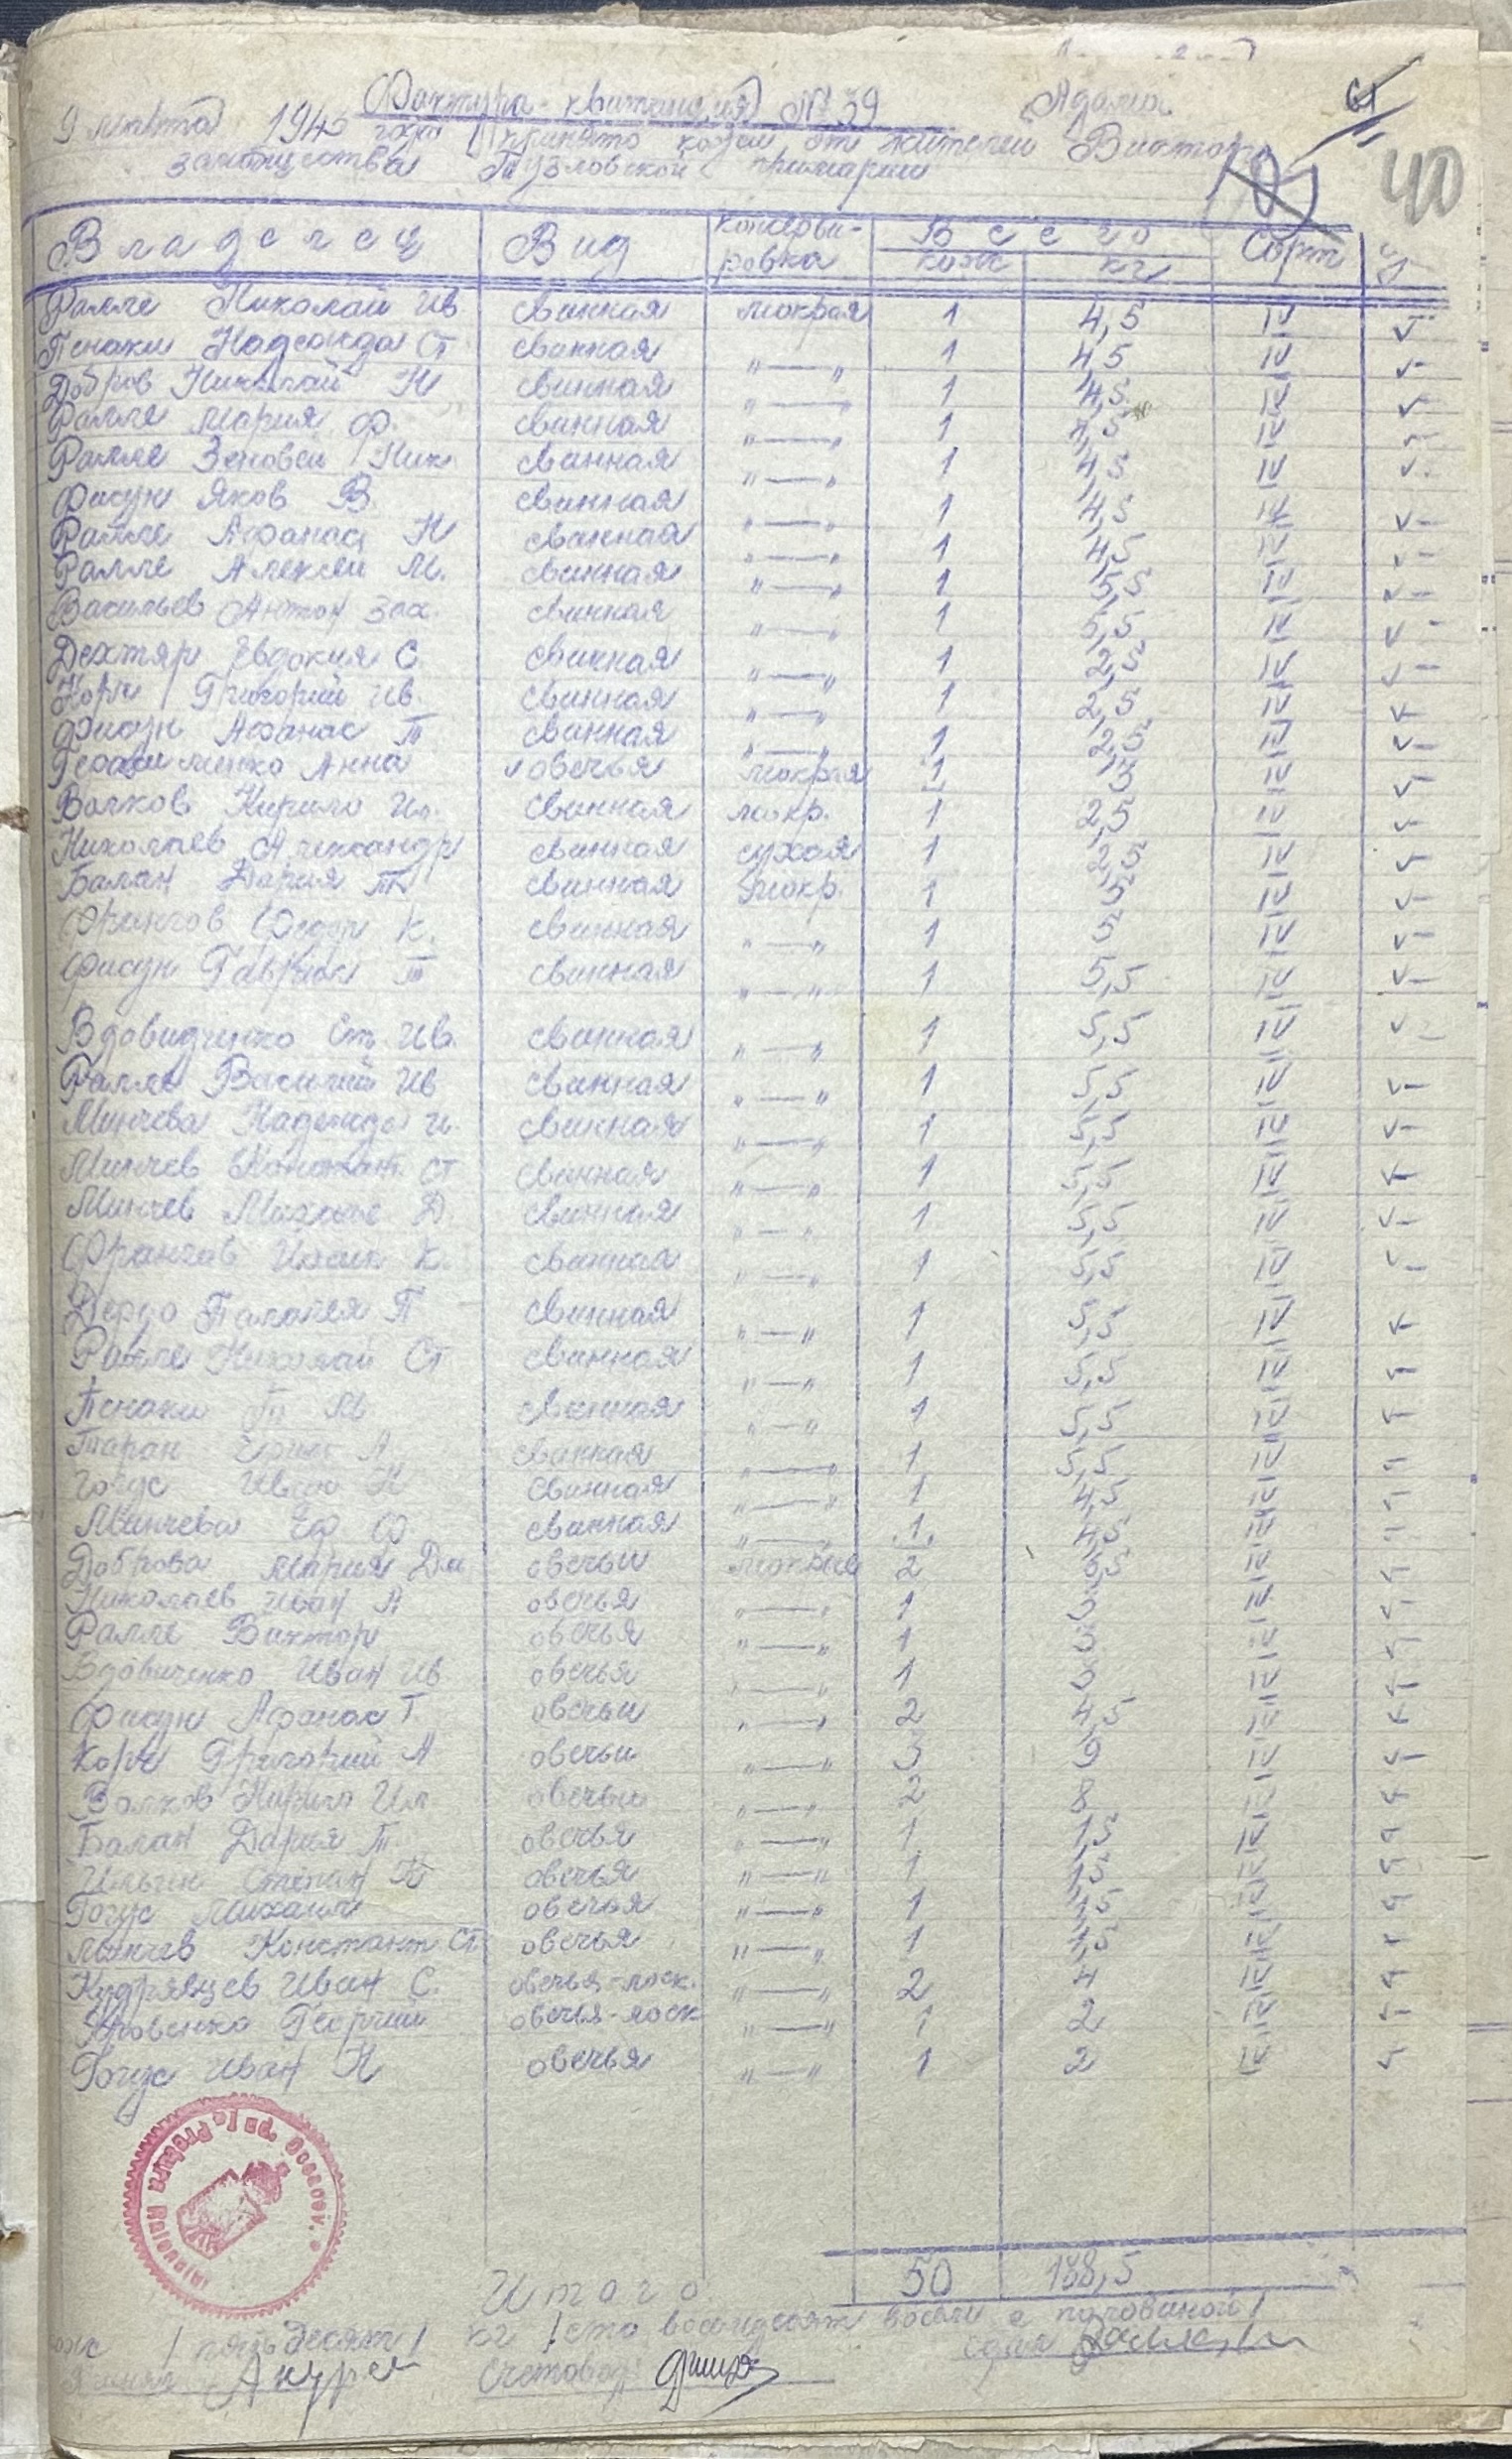 Фактура-квитанция № 39 Адама
61
9 марта 1945 года принято кожи от жителей
40
заготщества Тузловской примарии
Владелец Вид консерви-ровка Всего кож кг Сорт
Ралле Николай Ив свинная мокрая 1 4,5 IV
Пенаки Надежда Ст свинная "—" 1 4,5 IV
Добров Николай Н свинная "—" 1 4,5 IV
Ралле Мария Ф. свинная "—" 1 4,5 IV
Ралле Зеновей Ник свинная "—" 1 4,5 IV
Фисун Яков В. свинная "—" 1 4,5 IV
Ралле Афанас Н свинная "—" 1 4,5 IV
Ралле Алексей М. свинная "—" 1 5,5 IV
Васильев Антон Зах. свинная "—" 1 5,5 IV
Дехтяр Евдокия С. свинная "—" 1 2,5 IV
Корч Григорий Ив. свинная "—" 1 2,5 IV
Фисун Афанас Т свинная "—" 1 2,5 IV
Герасименко Анна овечья мокрая 1 3 IV
Волков Кирило Ил. свинная мокр. 1 2,5 IV
Николаев Александр свинная сухая 1 2,5 IV
Балан Дария свинная мокр. 1 5 IV
Франгов Федор К. свинная "—" 1 5 IV
Фисун Гаврил Т свинная "—" 1 5,5 IV
Вдовидченко Ст. Ив. свинная "—" 1 5,5 IV
Ралле Василий Ив свинная "—" 1 5,5 IV
Минчева Надежда И. свинная "—" 1 5,5 IV
Минчев Констант. Ст свинная "—" 1 5,5 IV
Минчев Д. свинная "—" 1 5,5 IV
Франгов К. свинная "—" 1 5,5 IV
Палагея П свинная "—" 1 5,5 IV
Ралле Николай Ст свинная "—" 1 5,5 IV
Пенаки М свинная "—" 1 5,5 IV
Таран А свинная "—" 1 5,5 IV
Гогус Иван Н свинная "—" 1 4,5 IV
Минчева Еф Ф. свинная "—" 1 4,5 IV
Доброва Мария Дм овечьи мокрые 2 6,5 IV
Николаев Иван А овечья "—" 1 3 IV
Ралле Виктор овечья "—" 1 3 IV
Вдовиченко Иван Ив овечья "—" 1 3 IV
Фисун Афанас Т. овечьи "—" 2 4,5 IV
Корч Григорий овечьи "—" 3 9 IV
Волков Кирило Ил. овечьи "—" 2 8 IV
Балан Дария Т. овечья "—" 1 1,5 IV
Ильин Степан овечья "—" 1 1,5 IV
Гогус Михаил овечья "—" 1 1,5 IV
Минчев Констант Ст овечья "—" 1 1,5 IV
Кудрявцев Иван С. овечья-лоск. "—" 2 4 IV
Яковенко Георгий овечья-лоск "—" 1 2 IV
Гогус Иван Н овечья "—" 1 2 IV
Итого 50 188,5
кож /пятьдесят/ кг /сто восемдесят восем с половиной/
Счетовод